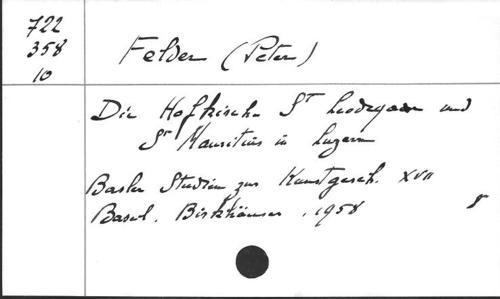 722
358
10
Felder (Peter)
Die Hofkirche St Leodegar und
St Mauritius in Luzern
Basler Studien zur Kunstgesch. XVII
Basel. Birkhäuser . 1958 8